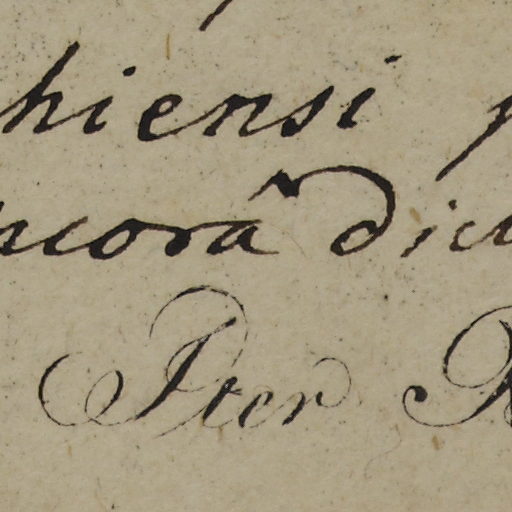 hiensi
ncorâ dici
Iter R